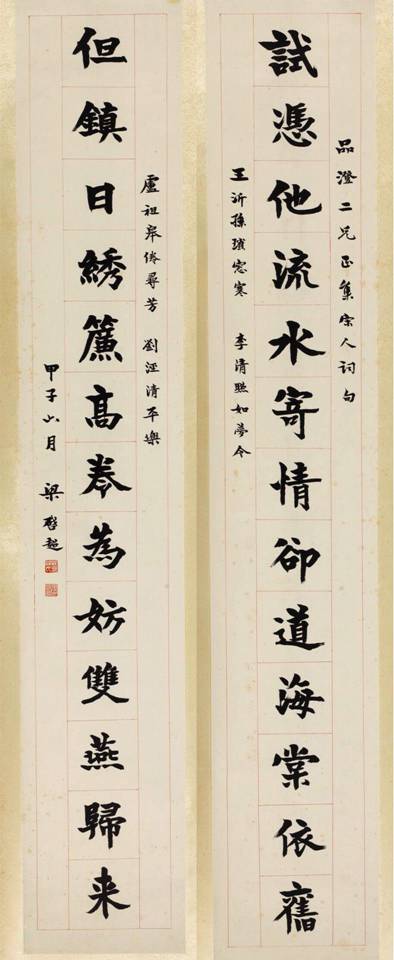 品澄二兄正集宋人詞句
試憑他流水寄情卻道海棠依舊
王沂孫瑣窗寒 李清照如夢令
盧祖皋倦尋芳 劉涇清平樂
但鎮日綉簾高卷為妨雙燕歸来
甲子六月 梁啓超